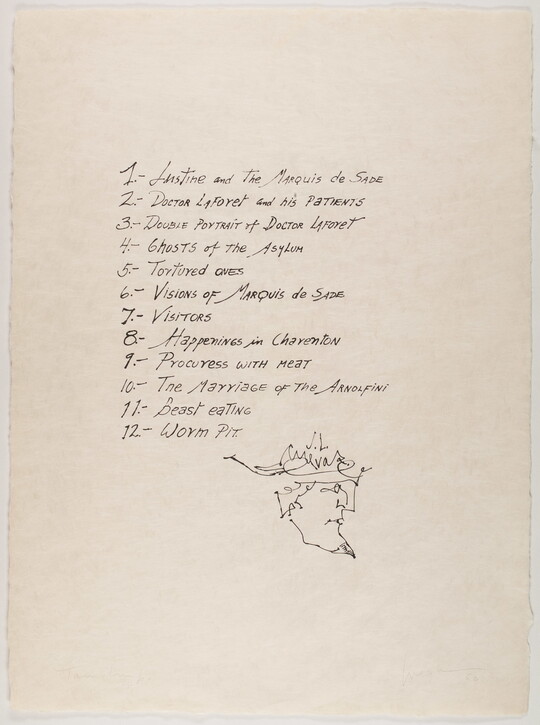 1.- Justine and the Marquis de Sade
2.- Doctor Laforet and his Patients
3.- Double Portrait of Doctor Laforet
4.- Ghosts of the Asylum
5.- Tortured ones
6.- Visions of Marquis de Sade
7.- Visitors
8.- Happenings in Charenton
9.- Procuress with meat
10.- The Marriage of the Arnolfini
11.- Beast eating
12.- Worm Pit
J.L.
Cuevas